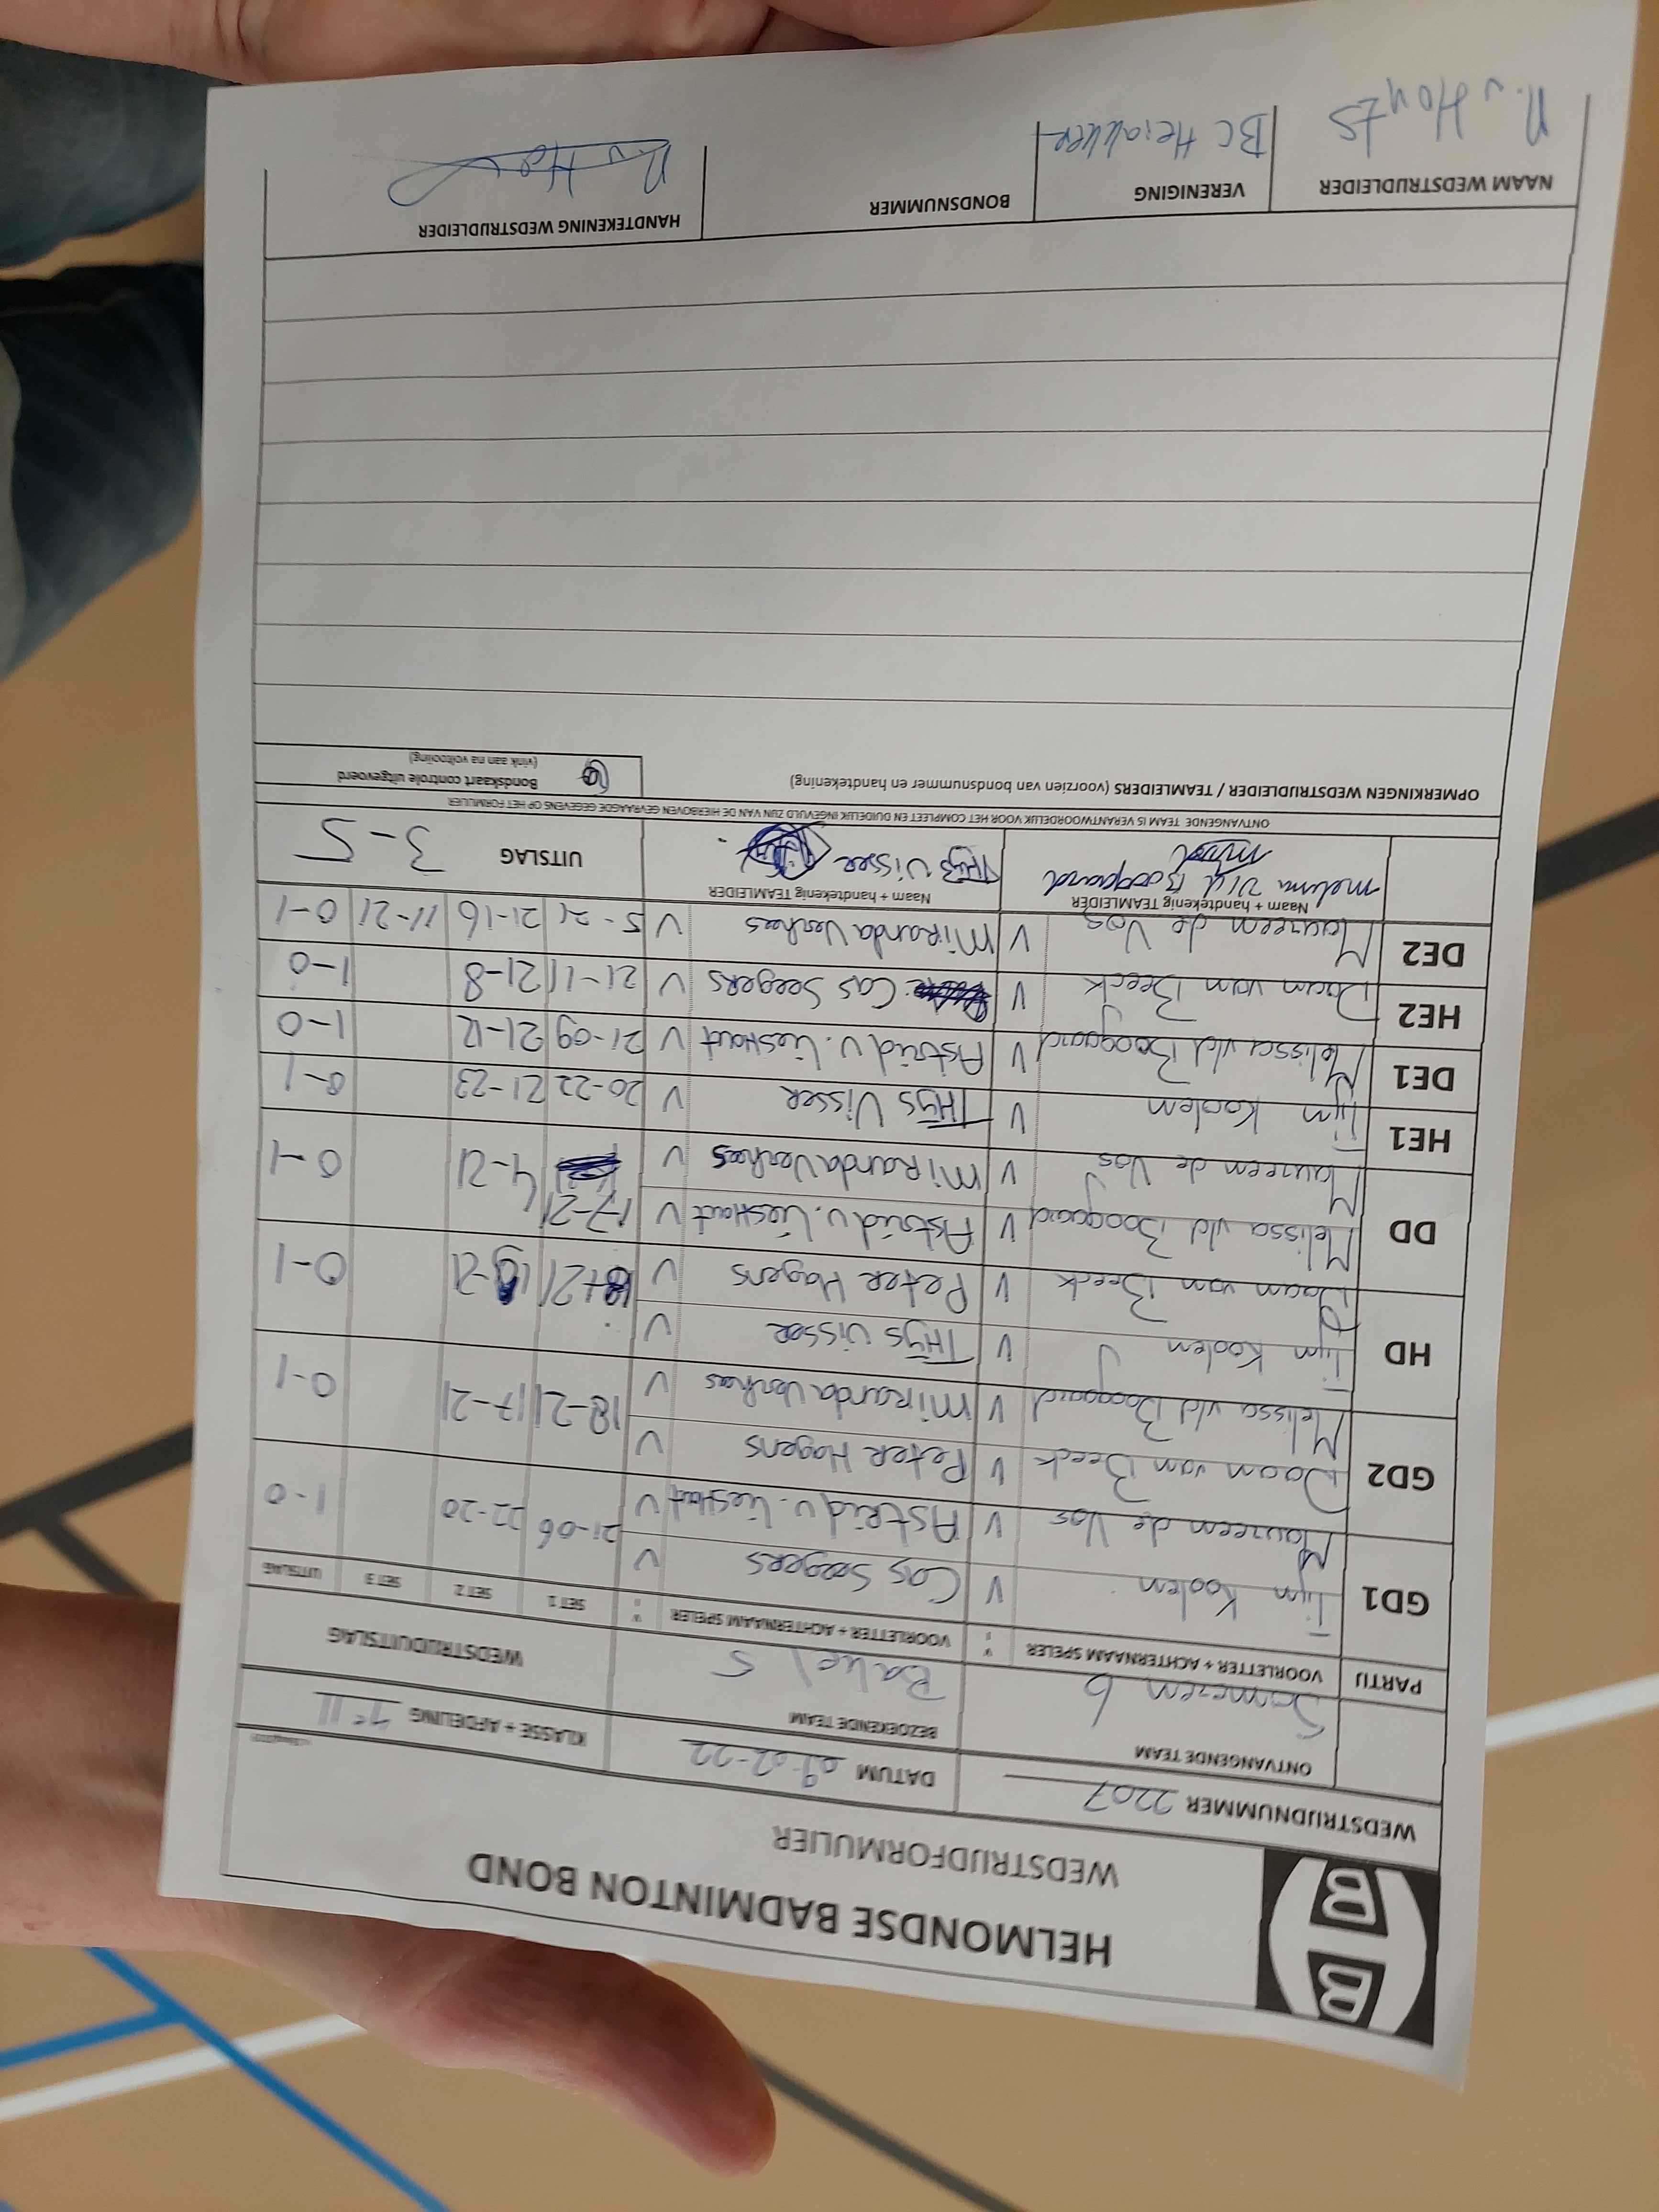 HELMONDSE BADMINTON BOND
WEDSTRIJDFORMULIER
WEDSTRIJDNUMMER 2207 DATUM 09-02-22 KLASSE + AFDELING
ONTVANGENDE TEAM BEZOEKENDE TEAM WEDSTRIJDUITSLAG
Someren 6 Bakel 5
PARTIJ VOORLETTER + ACHTERNAAM SPELER VOORLETTER + ACHTERNAAM SPELER SET 1 SET 2 SET 3 UITSLAG
GD1 Tijn Koolen V Cas Seegers V 21-06 22-20 1-0
Maureen de Vos V Astrid v. Lieshout V
GD2 Daan van Beeck V Peter Hagens V 18-21 17-21 0-1
Melissa vld Boogaard V Miranda Verhees V
HD Tijn Koolen V Thijs Visser V 18-21 19-21 0-1
Daan van Beeck V Peter Hagens V
DD Melissa vld Boogaard V Astrid v. Lieshout V 17-21 4-21 0-1
Maureen de Vos V Miranda Verhees V
HE1 Tijn Koolen V THijs Visser V 20-22 21-23 0-1
DE1 Melissa vld Boogaard V Astrid v. Lieshout V 21-09 21-12 1-0
HE2 Daan van Beeck V Cas Seegers V 21-11 21-8 1-0
DE2 Maureen de Vos V Miranda Verhees V 5-21 21-16 11-21 0-1
Naam + handtekenig TEAMLEIDER Naam + handtekenig TEAMLEIDER UITSLAG 3-5
Melissa v/d Boogaard THijs Visser
ONTVANGENDE TEAM IS VERANTWOORDELIJK VOOR HET COMPLEET EN DUIDELIJK INGEVULD ZIJN VAN DE HIERBOVEN GEVRAAGDE GEGEVENS OP HET FORMULIER
OPMERKINGEN WEDSTRIJDLEIDER / TEAMLEIDERS (voorzien van bondsnummer en handtekening) Bondskaart controle uitgevoerd
(vink aan na voltooing)
NAAM WEDSTRIJDLEIDER VERENIGING BONDSNUMMER HANDTEKENING WEDSTRIJDLEIDER
BC